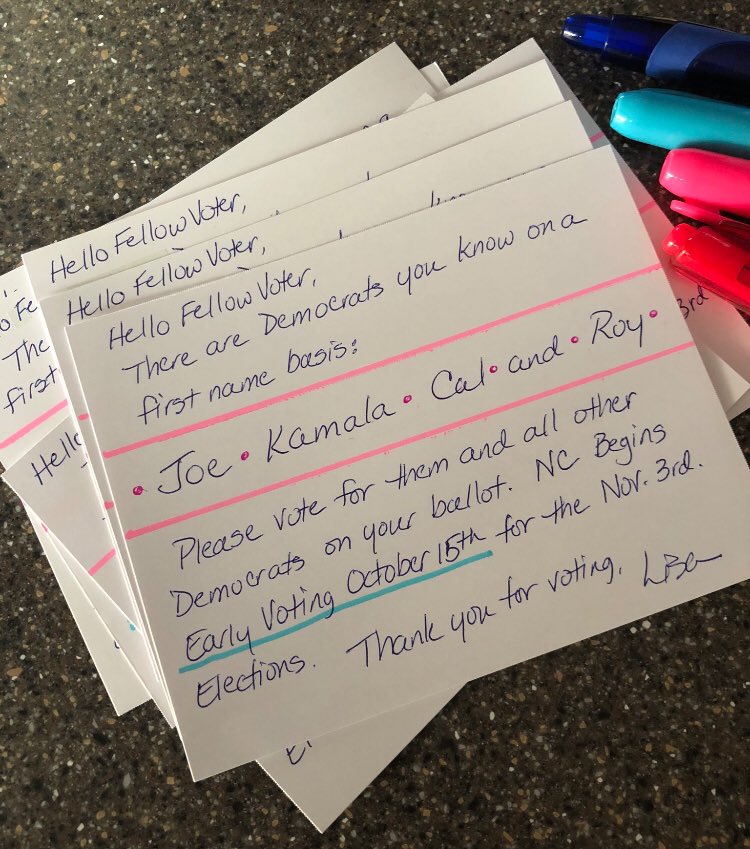 Hello Fellow Voter,
Hello Fellow Voter,
Hello Fellow Voter,
There are Democrats you know on a
first name basis:
• Joe • Kamala • Cal • and • Roy •
Please vote for them and all other
Democrats on your ballot. NC Begins
Early Voting October 15th for the Nov. 3rd.
Elections. Thank you for voting.
o Fe
The
first
Hello
3rd